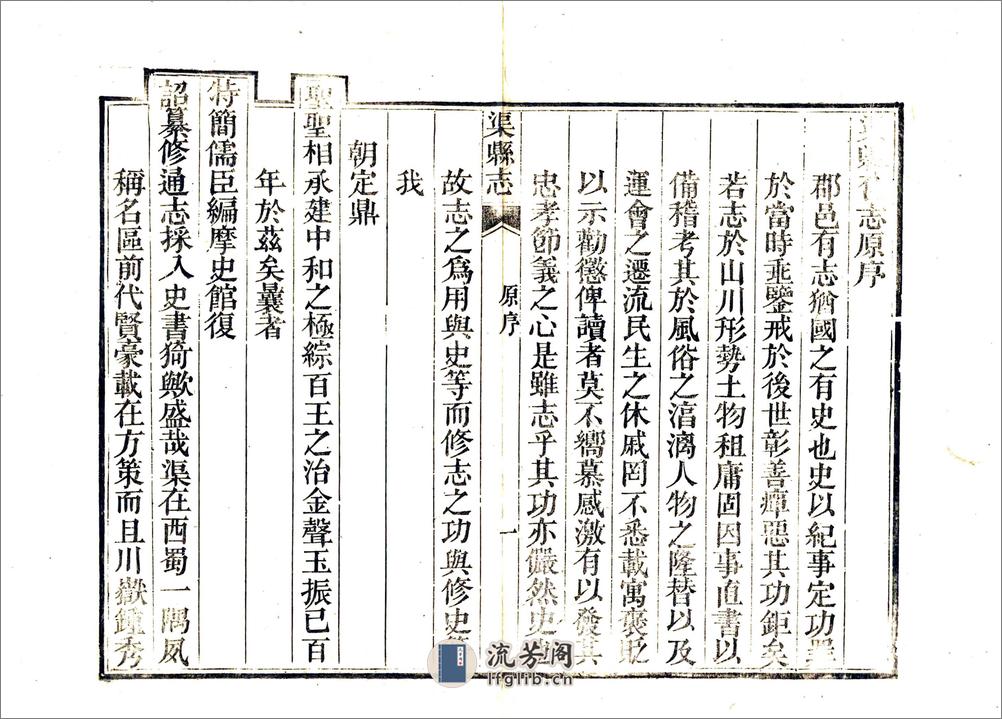 渠縣舊志原序
郡邑有志猶國之有史也史以紀事定功罪
於當時垂鑒戒於後世彰善癉惡其功鉅矣
若志於山川形勢土物租庸固因事直書以
備稽考其於風俗之湻漓人物之隆替以及
運會之遷流民生之休戚罔不悉載寓褒貶
以示勸懲俾讀者莫不嚮慕感激有以發其
忠孝節義之心是雖志乎其功亦儼然史
渠縣志
原序
一
故志之為用與史等而修志之功與修史
我
朝定鼎
聖聖相承建中和之極綜百王之治金聲玉振已百
年於茲矣曩者
特簡儒臣編摩史館復
詔纂修通志採入史書猗歟盛哉渠在西蜀一隅夙
稱名區前代賢豪載在方策而且川嶽鍾秀
流芳阁
lfglib.cn